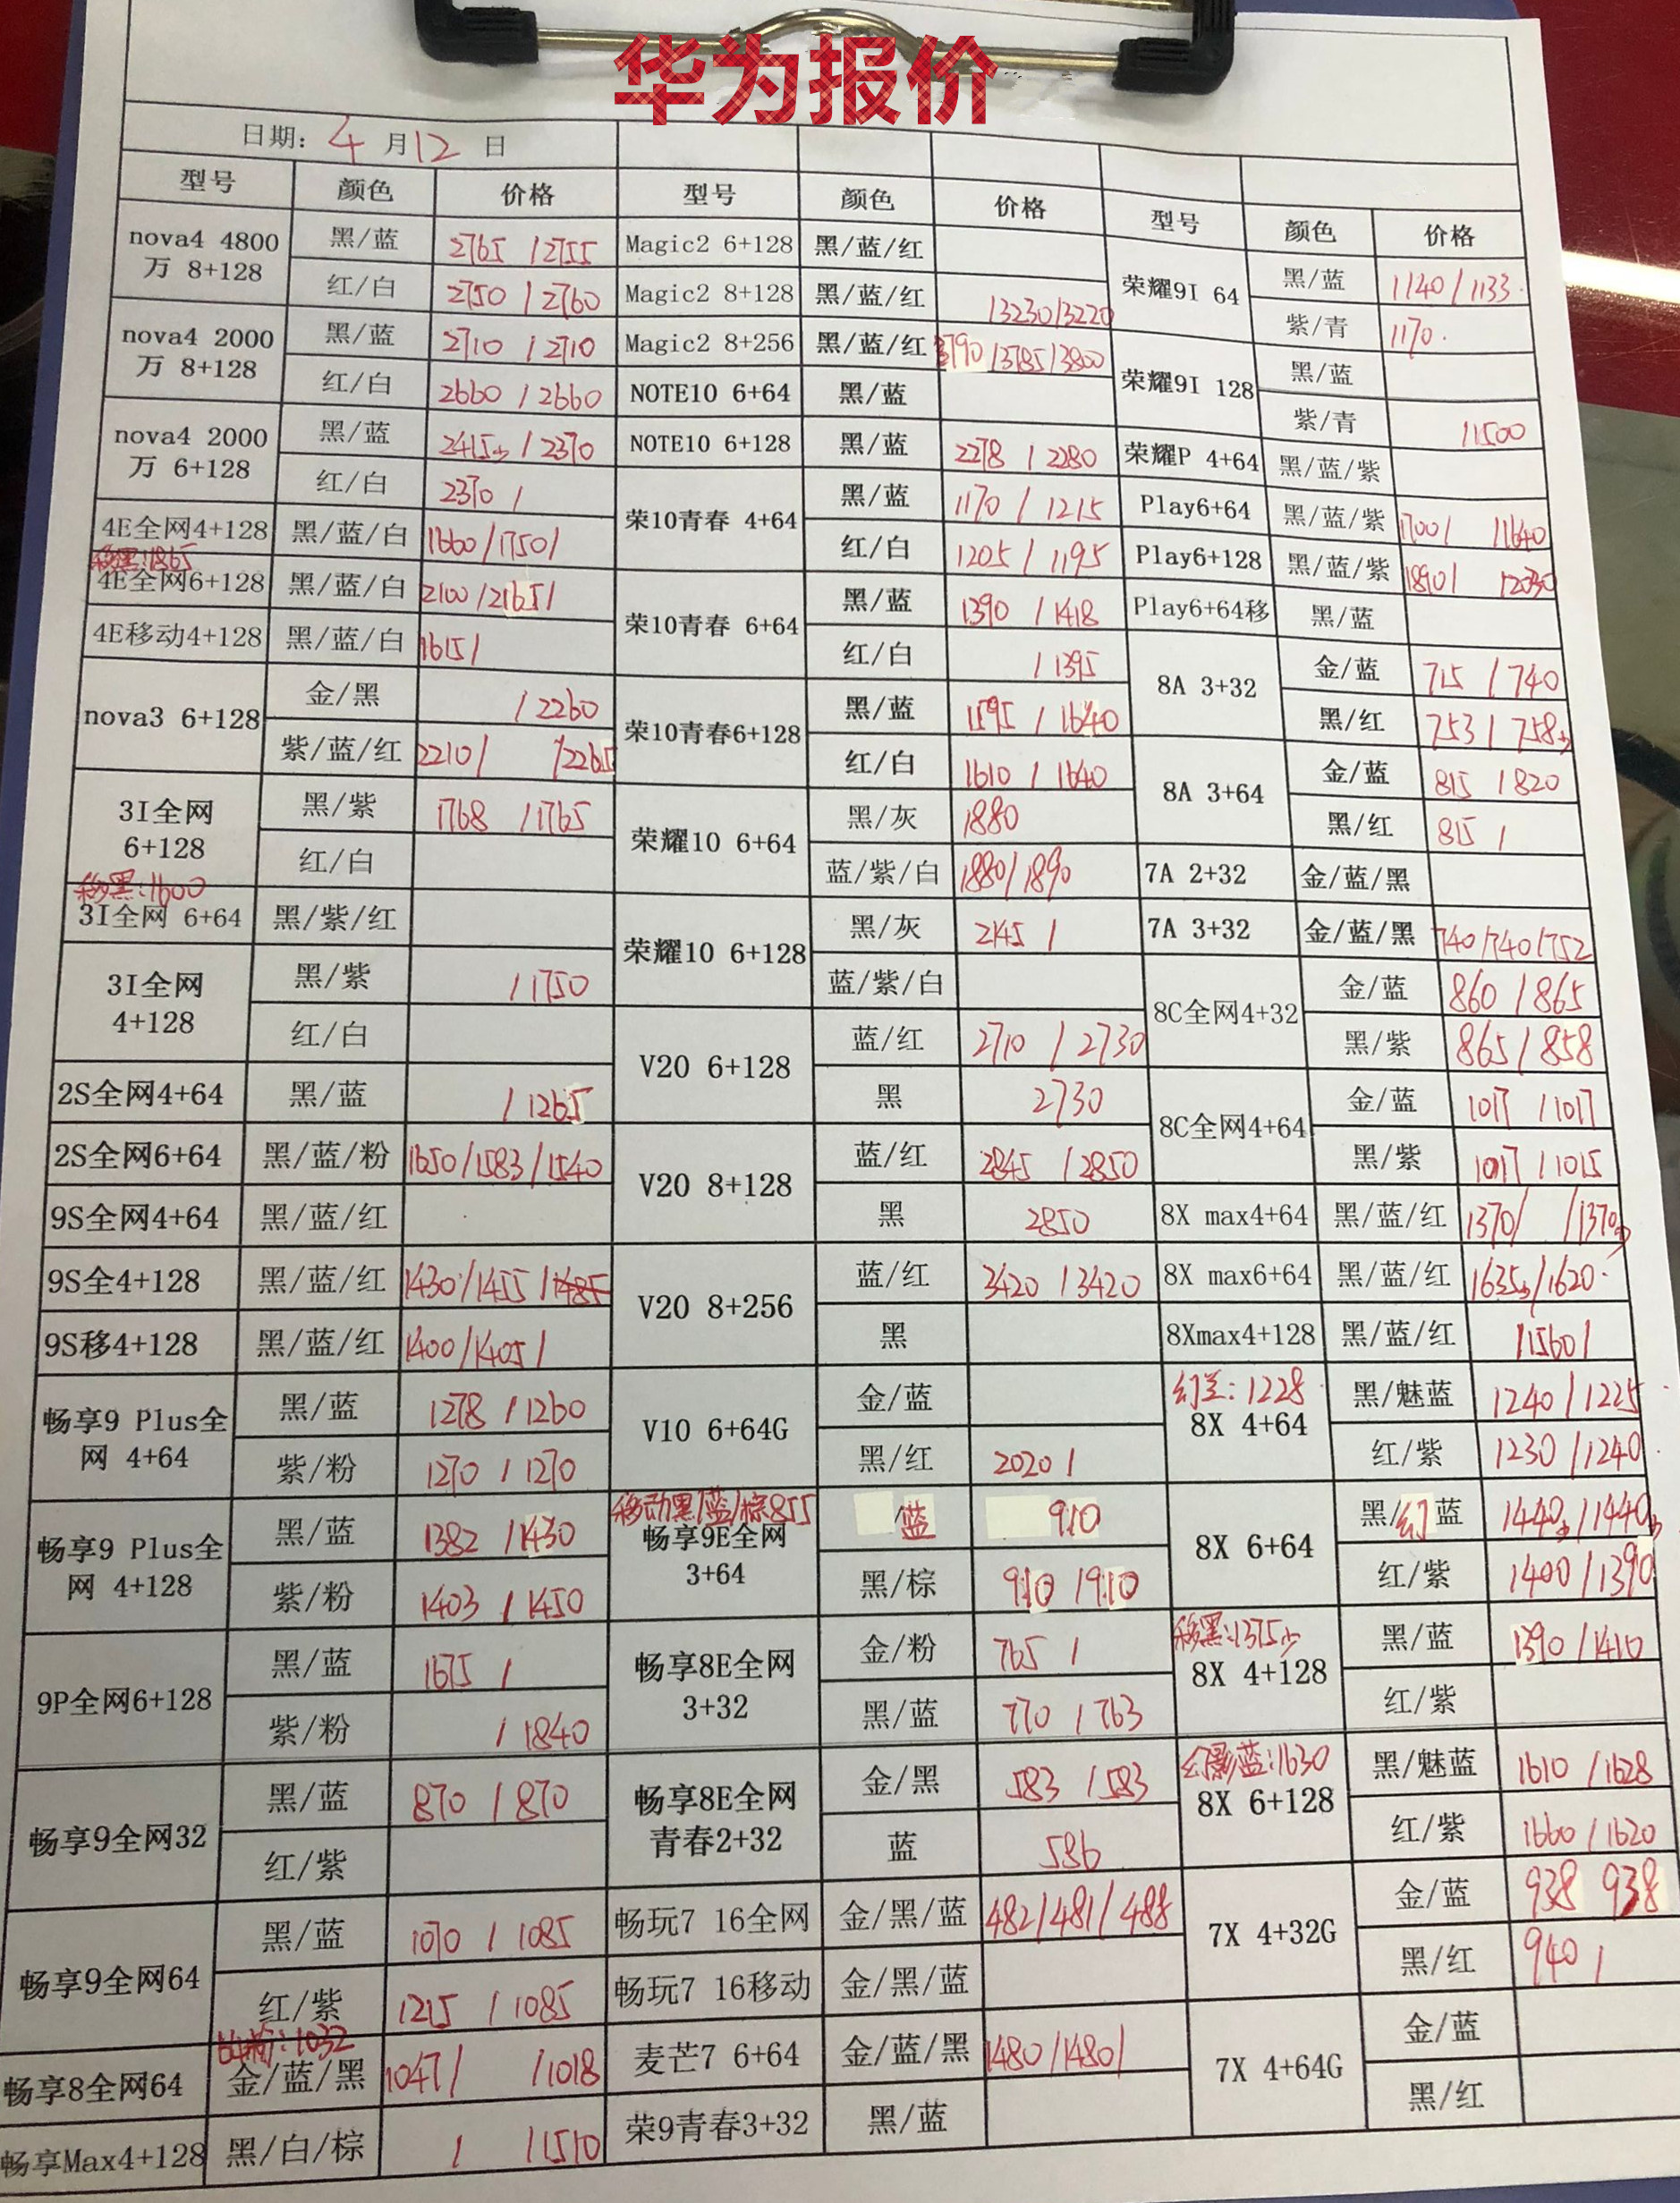 华为报价
日期: 4 月 12 日
型号 颜色 价格 型号 颜色 价格 型号 颜色 价格
nova4 4800万 8+128 黑/蓝 2765 / 2755
红/白 2750 / 2760
nova4 2000万 8+128 黑/蓝 2710 / 2710
红/白 2660 / 2660
nova4 2000万 6+128 黑/蓝 2415少 / 2370
红/白 2370 /
4E全网4+128 黑/蓝/白 1660/1750/
移黑:1865
4E全网6+128 黑/蓝/白 2100/2165/
4E移动4+128 黑/蓝/白 1615/
nova3 6+128 金/黑 / 2260
紫/蓝/红 2210/ /2265
3I全网 6+128 黑/紫 1768 /1765
红/白
移黑:1600
3I全网 6+64 黑/紫/红
3I全网 4+128 黑/紫 / 1750
红/白
2S全网4+64 黑/蓝 / 1265
2S全网6+64 黑/蓝/粉 1650/1583/1540
9S全网4+64 黑/蓝/红
9S全4+128 黑/蓝/红 1430/1455/1485
9S移4+128 黑/蓝/红 1400/1405/
畅享9 Plus全网 4+64 黑/蓝 1278 / 1260
紫/粉 1270 / 1270
畅享9 Plus全网 4+128 黑/蓝 1382 /1430
紫/粉 1403 / 1450
9P全网6+128 黑/蓝 1675 /
紫/粉 / 1840
畅享9全网32 黑/蓝 870 / 870
红/紫
畅享9全网64 黑/蓝 1070 / 1085
红/紫 1215 / 1085
:1032
畅享8全网64 金/蓝/黑 1047/ /1018
畅享Max4+128 黑/白/棕 / /1510
Magic2 6+128 黑/蓝/红
Magic2 8+128 黑/蓝/红 /3230/3220
Magic2 8+256 黑/蓝/红 3790/3785/3800
NOTE10 6+64 黑/蓝
NOTE10 6+128 黑/蓝 2278 / 2280
荣10青春 4+64 黑/蓝 1170 / 1215
红/白 1205 / 1195
荣10青春 6+64 黑/蓝 1390 / 1418
红/白 / 1395
荣10青春6+128 黑/蓝 1595 / 1640
红/白 1610 / 1640
荣耀10 6+64 黑/灰 1880
蓝/紫/白 1880/1890
荣耀10 6+128 黑/灰 2145 /
蓝/紫/白
V20 6+128 蓝/红 2710 / 2730
黑 2730
V20 8+128 蓝/红 2845 / 2850
黑 2850
V20 8+256 蓝/红 3420 / 3420
黑
V10 6+64G 金/蓝
黑/红 2020 /
移动黑/蓝/棕855
畅享9E全网 3+64 /蓝 910
黑/棕 910 /910
畅享8E全网 3+32 金/粉 765 /
黑/蓝 770 / 763
畅享8E全网 青春2+32 金/黑 583 / 583
蓝 586
畅玩7 16全网 金/黑/蓝 482/481/488
畅玩7 16移动 金/黑/蓝
麦芒7 6+64 金/蓝/黑 1480/1480/
荣9青春3+32 黑/蓝
荣耀9I 64 黑/蓝 1140/1133
紫/青 1170
荣耀9I 128 黑/蓝
紫/青 /1500
荣耀P 4+64 黑/蓝/紫
Play6+64 黑/蓝/紫 1700/ /1640
Play6+128 黑/蓝/紫 1890/ /2030
Play6+64移 黑/蓝
8A 3+32 金/蓝 715 / 740
黑/红 753 / 758少
8A 3+64 金/蓝 815 / 820
黑/红 815 /
7A 2+32 金/蓝/黑
7A 3+32 金/蓝/黑 740/740/752
8C全网4+32 金/蓝 860 / 865
黑/紫 865 / 858
8C全网4+64 金/蓝 1017 / 1017
黑/紫 1017 / 1015
8X max4+64 黑/蓝/红 1370/ /1370少
8X max6+64 黑/蓝/红 1635少/1620
8Xmax4+128 黑/蓝/红 /1560/
幻兰: 1228
8X 4+64 黑/魅蓝 1240 / 1225
红/紫 1230 / 1240
8X 6+64 黑/幻蓝 1440少/1440少
红/紫 1400 / 1390
移黑:1375少
8X 4+128 黑/蓝 1390 / 1410
红/紫
幻影蓝:1630
8X 6+128 黑/魅蓝 1610 / 1628
红/紫 1660 / 1620
7X 4+32G 金/蓝 938 938
黑/红 940 /
7X 4+64G 金/蓝
黑/红